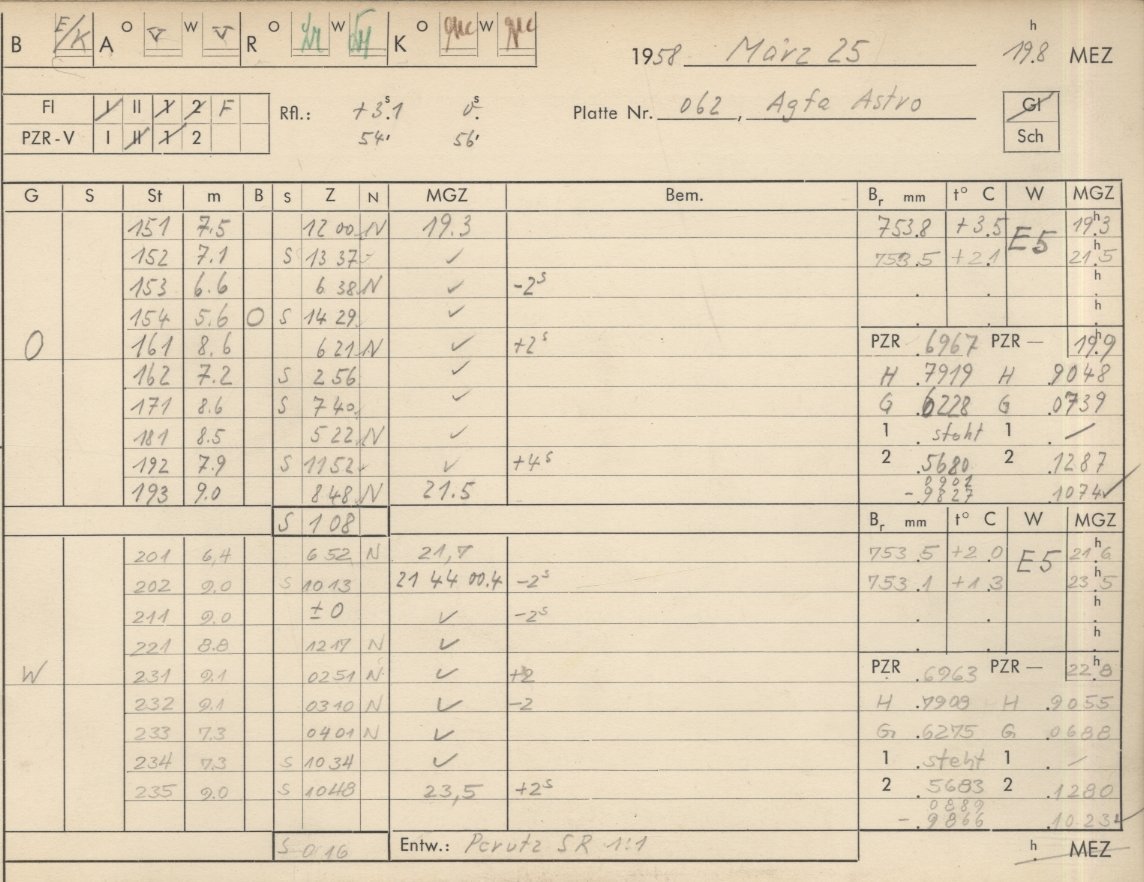 B E/K A O W R O W K O W
1958 März 25 19.8 h MEZ
FI I II 1 2 F Rfl.: +3.s1 0.s Platte Nr. 062, Agfa Astro Gl
PZR-V I II 1 2 54' 56' Sch
G S St m B S Z N MGZ Bem. Br mm t° C W MGZ
151 7.5 12 00 N 19.3 753.8 +3.5 E5 19.h3
152 7.1 S 13 37 ✓ 753.5 +2.1 21.h5
153 6.6 6 38 N ✓ -2s . . .h
154 5.6 O S 14 29 ✓ . . .h
O 161 8.6 6 21 N ✓ +2s PZR .6967 PZR — 19.h9
162 7.2 S 2 56 ✓ H .7919 H .9048
171 8.6 S 7 40 ✓ G .6228 G .0739
181 8.5 5 22 N ✓ 1 . steht 1 . /
192 7.9 S 11 52 ✓ +4s 2 .5680 2 .1287
193 9.0 8 48 N 21.5 0901
- .9827 .1074 ✓
S 1 08 Br mm t° C W MGZ
201 6,4 6 52 N 21,7 753.5 +2.0 E5 21.h6
202 9.0 S 10 13 21 44 00.4 -2s 753.1 +1.3 23.h5
211 9.0 ±0 ✓ -2s . . .h
221 8.8 12 17 N ✓ . . .h
W 231 9.1 02 51 N ✓ +2 PZR .6963 PZR — 22.h8
232 9.1 03 10 N ✓ -2 H .7909 H .9055
233 7.3 04 01 N ✓ G .6275 G .0688
234 7.3 S 10 34 ✓ 1 . steht 1 . /
235 9.0 S 10 48 23,5 +2s 2 .5683 2 .1280
0889
- .9866 .1023 ✓
S 0 16 Entw.: Perutz SR 1:1 .h MEZ